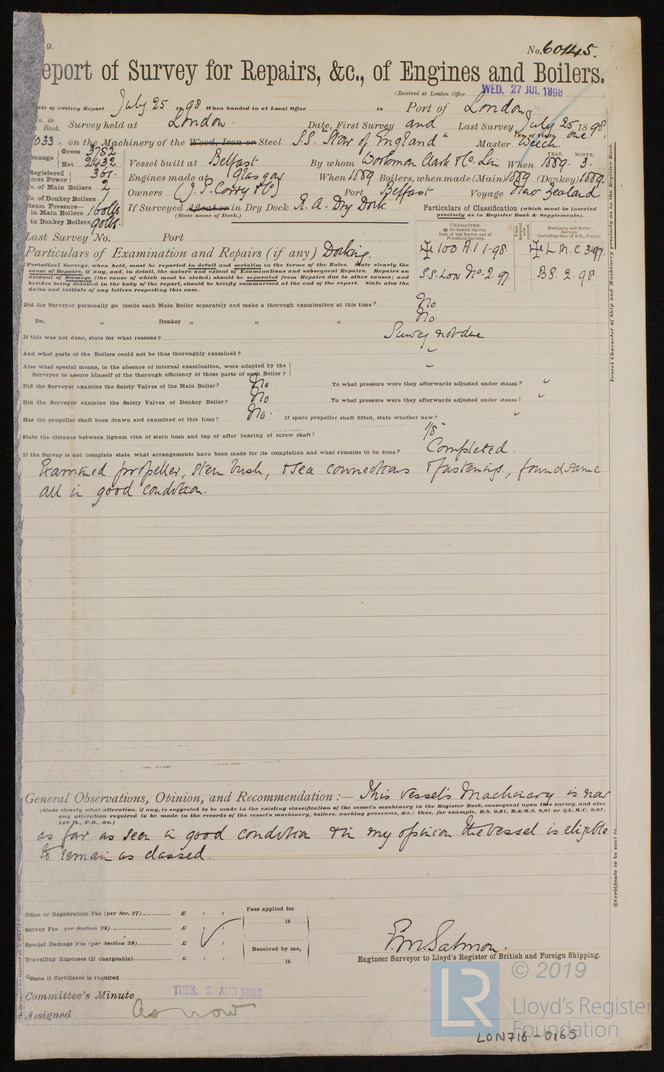 9.
No. 60145.
eport of Survey for Repairs, &c., of Engines and Boilers.
(Received at London Office WED. 27 JUL 1898
ate of writing Report July 25 1898 When handed in at Local Office 18 Port of London
o. in
. Book. Survey held at London. Date, First Survey and Last Survey July 25 1898
1033 - on the Machinery of the Wood, Iron or Steel S.S. "Star of England" Master Weech
onnage Gross 3752
Net 2432
Vessel built at Belfast By whom Workman Clark & Co. Lim When 1889. 3.
YEAR. MONTH.
Registered
orse Power 361.
Engines made at Glasgow When 1889 Boilers, when made (Main) 1889 (Donkey) 1889
o. of Main Boilers 2
Owners (J. P. Corry & Co) Port Belfast Voyage New Zealand
o. of Donkey Boilers
team Pressure—
in Main Boilers 160 lbs
in Donkey Boilers 90 lbs
If Surveyed Afloat or in Dry Dock R. A. Dry Dock
(State name of Dock.)
Particulars of Classification (which must be inserted
precisely as in Register Book & Supplements).
Last Survey No. Port
CHARACTER.
Machinery and Boiler
Surveys
✠ 100 A.1 1-98
✠ L.M.C 3.97.
S.S. Lon No 2. 97.
B.S. 2. 98
Particulars of Examination and Repairs (if any) Docking.
Periodical Surveys, when held, must be reported in detail and seriatim in the terms of the Rules. State clearly the
cause of Repairs, if any, and, in detail, the nature and extent of Examinations and subsequent Repairs. Repairs on
account of Damage (the cause of which must be stated) should be separated from Repairs due to other causes; and
besides being detailed in the body of the report, should be briefly summarised at the end of the report. State also the
dates and initials of any letters respecting this case.
Did the Surveyor personally go inside each Main Boiler separately and make a thorough examination at this time? No
Do. „ Donkey „ „ „ No.
If this was not done, state for what reasons? Survey not due
And what parts of the Boilers could not be thus thoroughly examined? "
Also what special means, in the absence of internal examination, were adopted by the
Surveyor to assure himself of the thorough efficiency of those parts of each Boiler? "
Did the Surveyor examine the Safety Valves of the Main Boiler? No To what pressure were they afterwards adjusted under steam? "
Did the Surveyor examine the Safety Valves of Donkey Boiler? No To what pressure were they afterwards adjusted under steam? "
Has the propeller shaft been drawn and examined at this time? No. If spare propeller shaft fitted, state whether new? "
State the distance between lignum vitæ of stern bush and top of after bearing of screw shaft? 1/8"
If the Survey is not complete state what arrangements have been made for its completion and what remains to be done? Completed.
Examined propeller, stern bush, & sea connections & fastenings, found same
all in good condition.
General Observations, Opinion, and Recommendation :— This vessel's Machinery is now
(State clearly what alteration, if any, is suggested to be made in the existing classification of the vessel's machinery in the Register Book, consequent upon this survey, and also
any alteration required to be made in the records of the vessel's machinery, boilers, working pressures, &c.;
as far as seen in good condition & in my opinion the vessel is eligible
to remain as classed.
Office or Registration Fee (per Sec. 27) £ : :
Survey Fee (per Section 28) £ : :
Special Damage Fee (per Section 28) £ : :
Travelling Expenses (if chargeable) £ : :
Fees applied for
18
Received by me,
18
F. M. Salmon.
Engineer Surveyor to Lloyd's Register of British and Foreign Shipping.
State if Certificate is required
Committee's Minute TUES. 2 AUG 1898
Assigned As now
Insert Character of Ship and Machinery precisely as in the Register Book.
Certificate to be sent to
LR
© 2019
Lloyd's Register
Foundation
LON716-0165